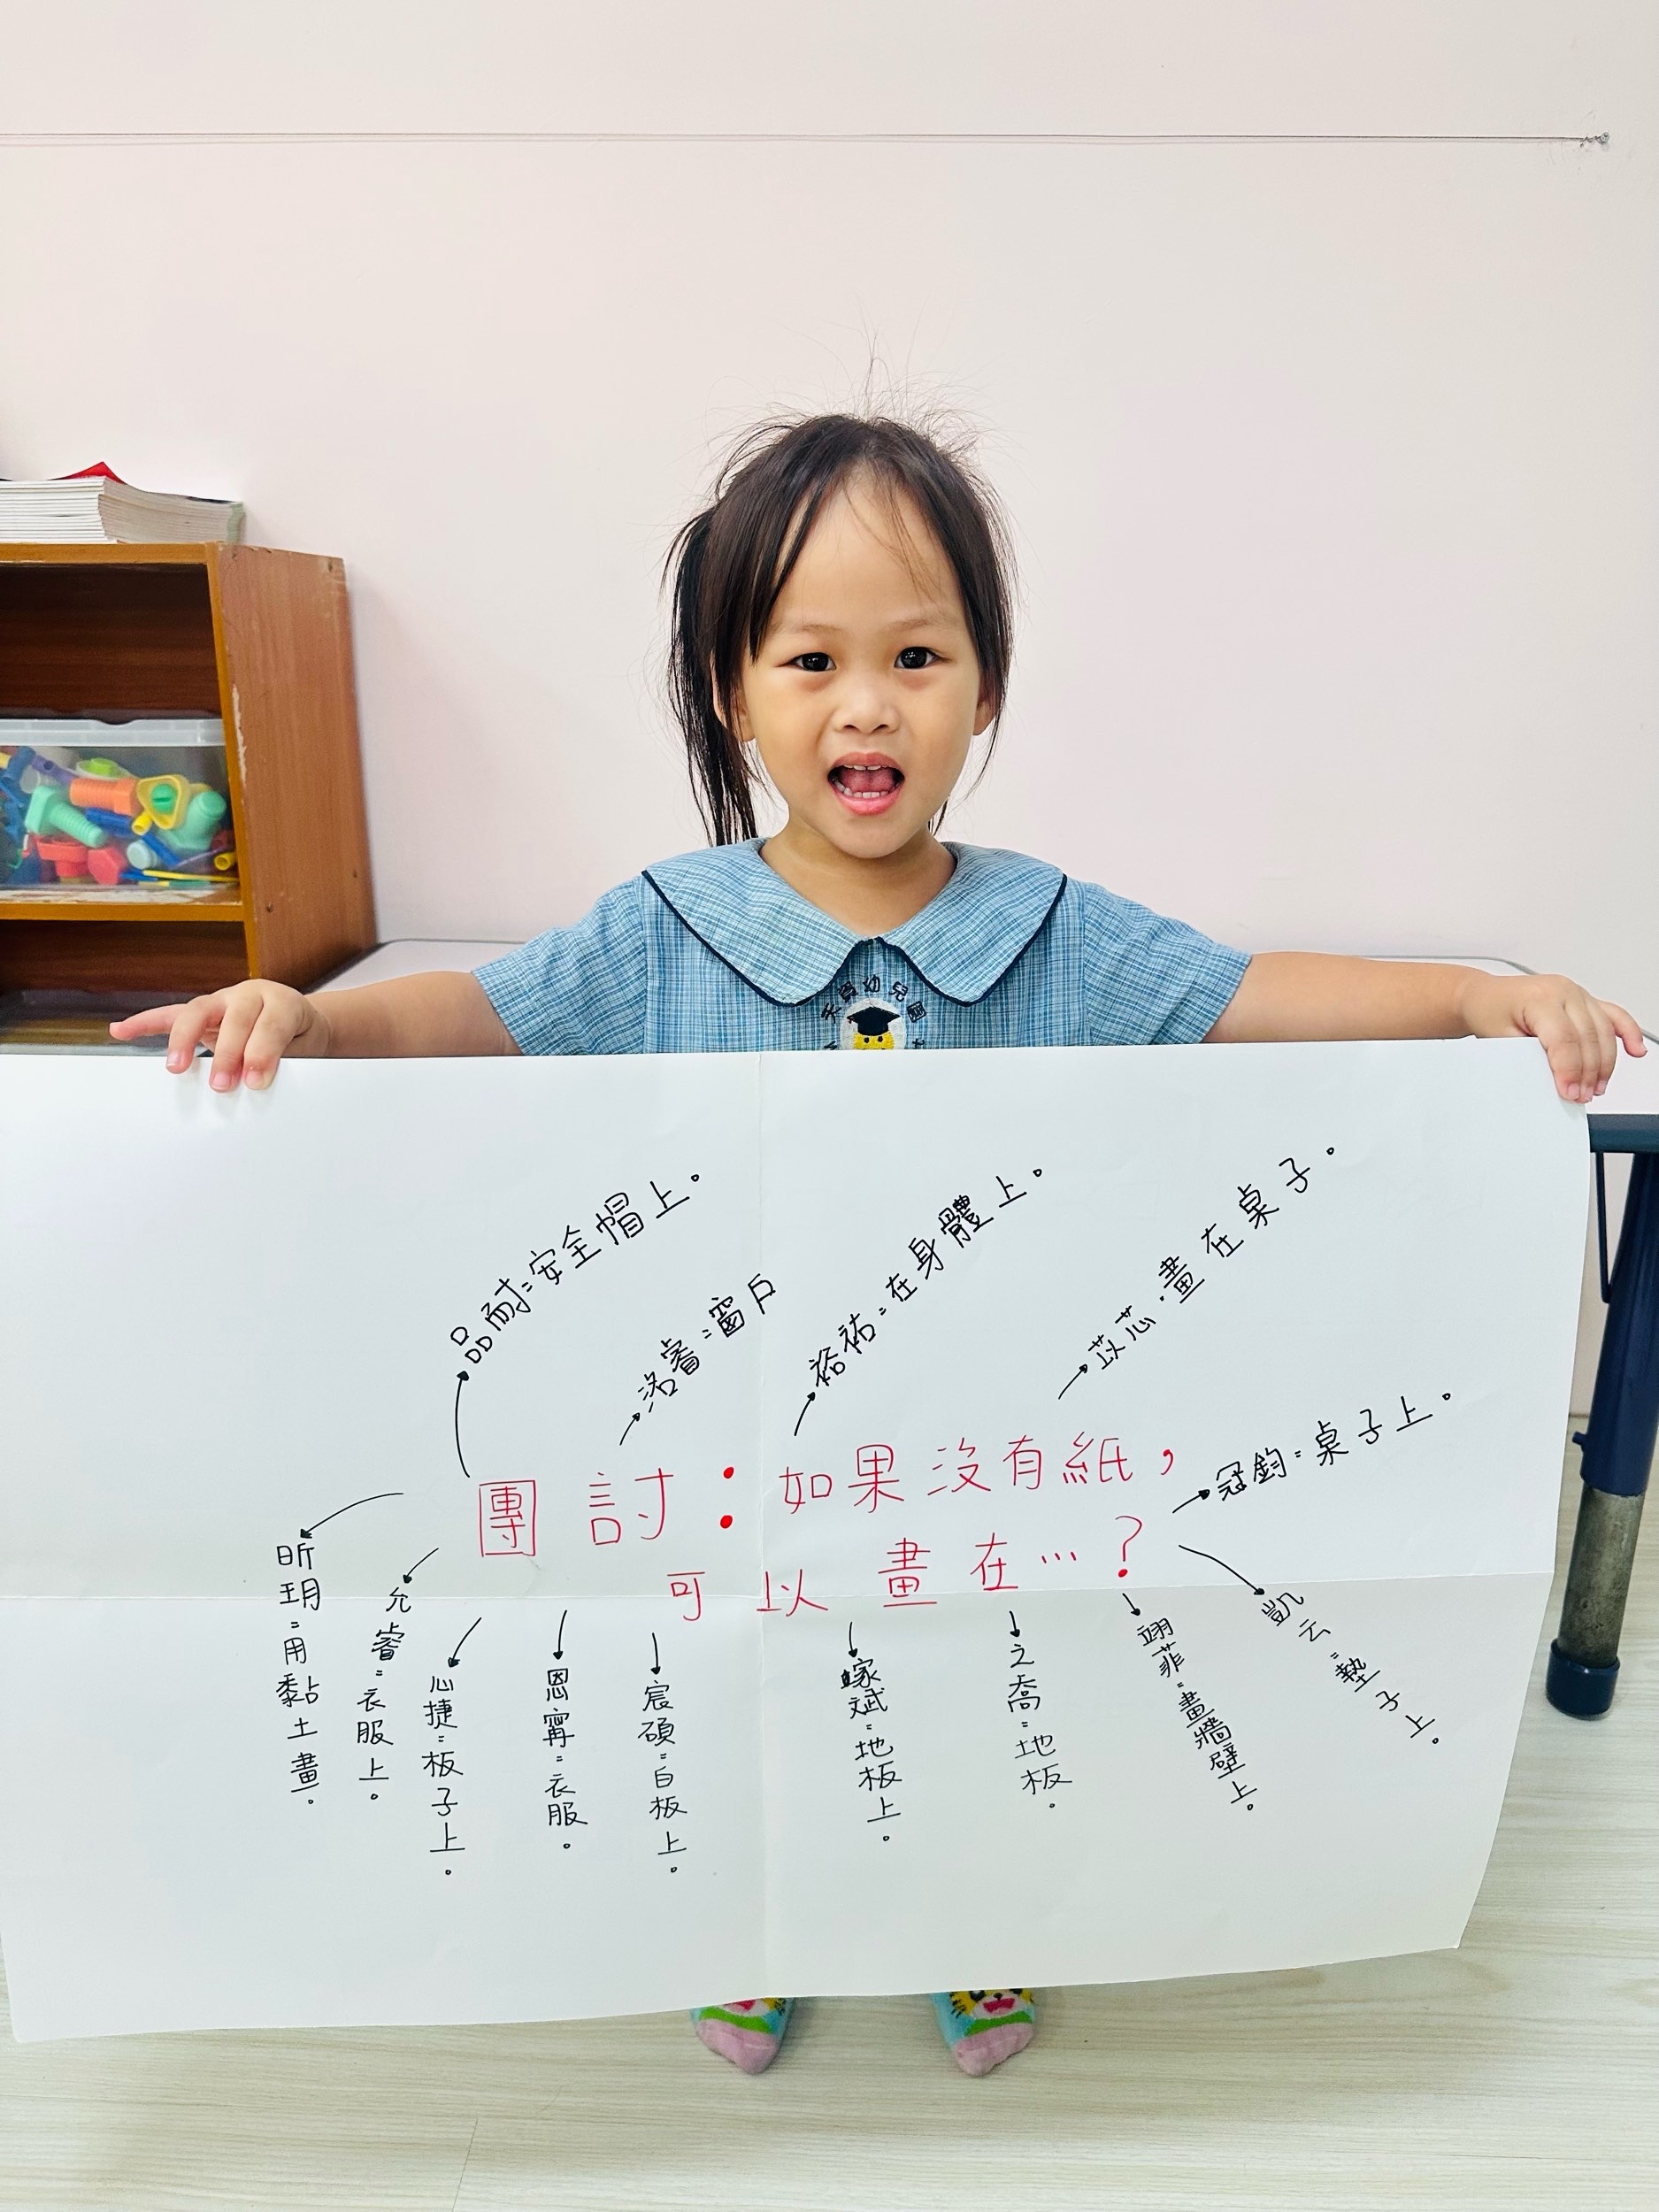 天育幼兒園
品耐:安全帽上。
洛睿:窗戶
裕祐:在身體上。
苡芯:畫在桌子。
團討：如果沒有紙，
可以畫在…？
冠鈞:桌子上。
昕玥:用黏土畫。
允睿:衣服上。
心捷:板子上。
恩寗:衣服。
宸碩:白板上。
嫁斌:地板上。
之喬:地板。
翊菲:畫牆壁上。
凱云:墊子上。